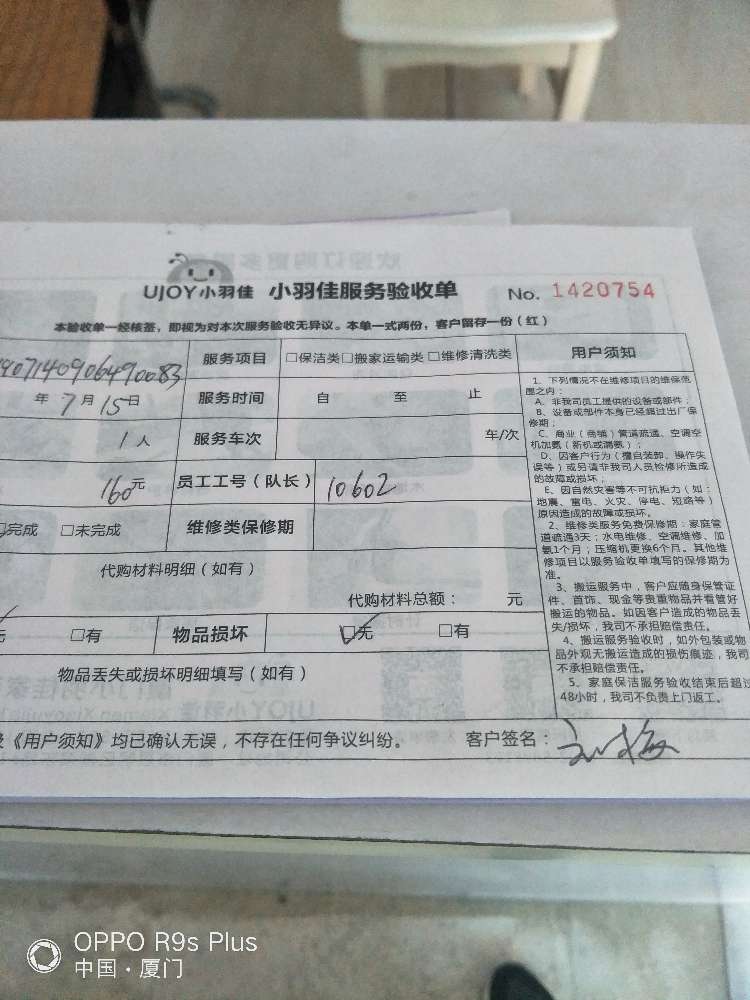 UJOY小羽佳 小羽佳服务验收单 No. 1420754
本验收单一经核签，即视为对本次服务验收无异议。本单一式两份，客户留存一份（红）
服务项目 □保洁类□搬家运输类□维修清洗类 用户须知
年7月15日 服务时间 自 至 止
1人 服务车次 车/次
160元 员工工号（队长） 10602
完成 □未完成 维修类保修期
代购材料明细（如有）
代购材料总额： 元
□有 物品损坏 ☑无 □有
物品丢失或损坏明细填写（如有）
1、下列情况不在维修项目的维保范
围之内：
A、非我司员工提供的设备或部件；
B、设备或部件本身已经超过出厂保
修期；
C、商业（商铺）管道疏通、空调空
机加氨（新机或漏氨）；
D、因客户行为（擅自装卸、操作失
误等）或另请非我司人员检修所造成
的故障或损坏；
E、因自然灾害等不可抗拒力（如：
地震、雷电、火灾、停电、短路等）
原因造成的故障或损坏。
2、维修类服务免费保修期：家庭管
道疏通3天；水电维修、空调维修、加
氨1个月；压缩机更换6个月。其他维
修项目以服务验收单填写的保修期为
准。
3、搬运服务中，客户应随身保管证
件、首饰、现金等贵重物品并看管好
搬运的物品。如因客户造成的物品丢
失/损坏，我司不承担赔偿责任。
4、搬运服务验收时，如外包装或物
品外观无搬运造成的损伤痕迹，我司
不承担赔偿责任。
5、家庭保洁服务验收结束后超过
48小时，我司不负责上门返工。
《用户须知》均已确认无误，不存在任何争议纠纷。 客户签名：
OPPO R9s Plus
中国·厦门